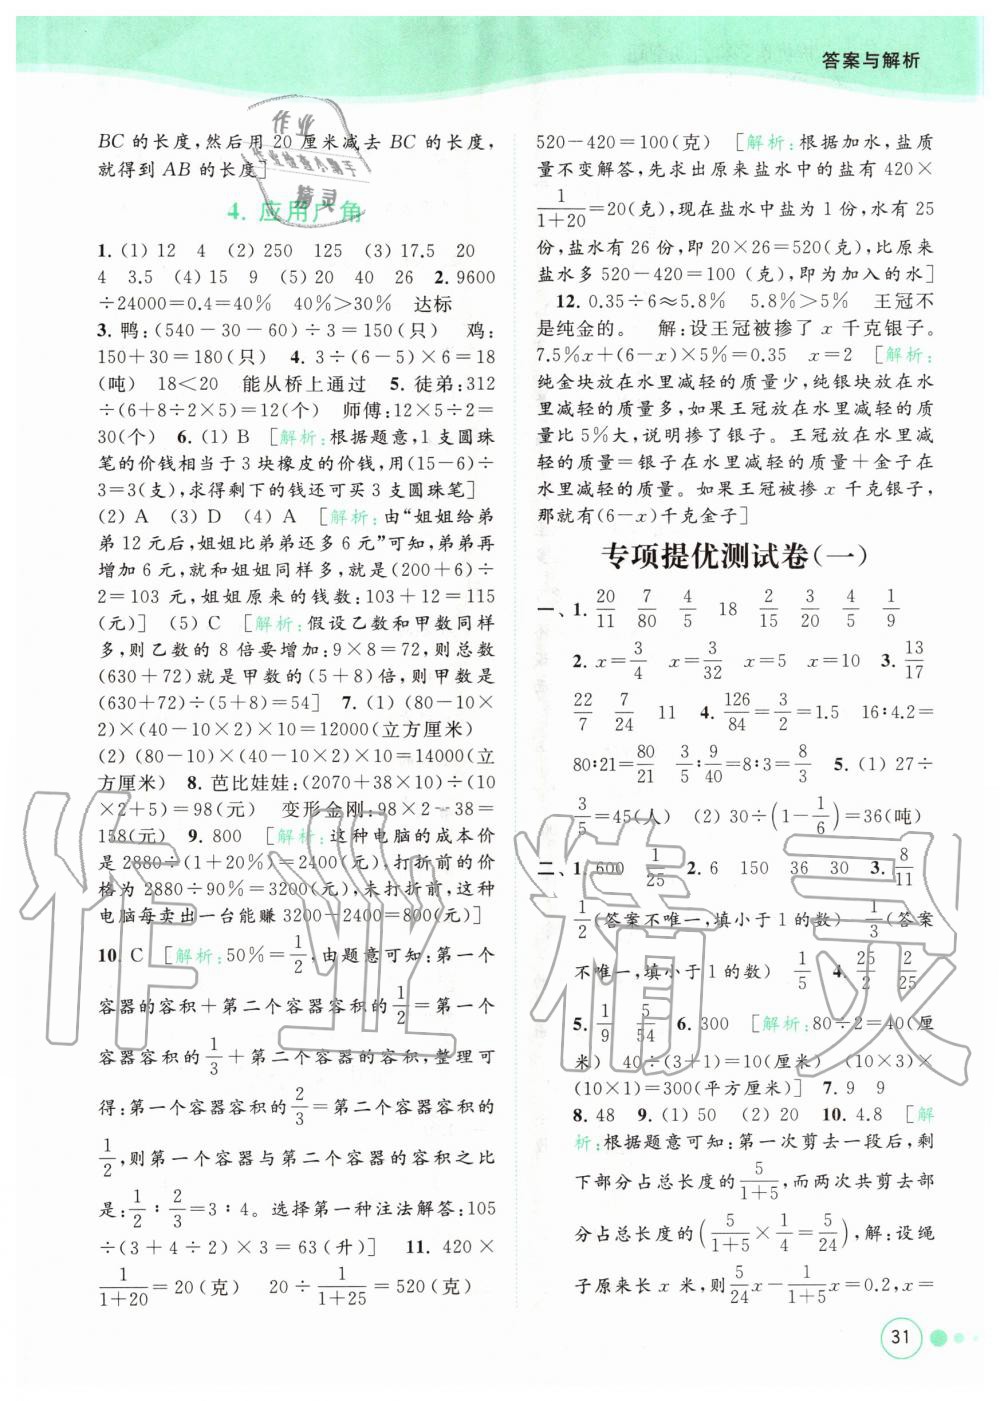 答案与解析
BC 的长度,然后用 20 厘米减去 BC 的长度,
就得到 AB 的长度]
4. 应用广角
1. (1) 12 4 (2) 250 125 (3) 17.5 20
4 3.5 (4) 15 9 (5) 20 40 26 2. 9600
÷24000=0.4=40% 40%>30% 达标
3. 鸭:(540-30-60)÷3=150(只) 鸡:
150+30=180(只) 4. 3÷(6-5)×6=18
(吨) 18<20 能从桥上通过 5. 徒弟:312
÷(6+8÷2×5)=12(个) 师傅:12×5÷2=
30(个) 6. (1) B [解析:根据题意,1 支圆珠
笔的价钱相当于 3 块橡皮的价钱,用(15-6)÷
3=3(支),求得剩下的钱还可买 3 支圆珠笔]
(2) A (3) D (4) A [解析:由“姐姐给弟
弟 12 元后,姐姐比弟弟还多 6 元”可知,弟弟再
增加 6 元,就和姐姐同样多,就是(200+6)÷
2=103 元,姐姐原来的钱数:103+12=115
(元)] (5) C [解析:假设乙数和甲数同样
多,则乙数的 8 倍要增加:9×8=72,则总数
(630+72)就是甲数的(5+8)倍,则甲数是
(630+72)÷(5+8)=54] 7. (1) (80-10×
2)×(40-10×2)×10=12000(立方厘米)
(2) (80-10)×(40-10×2)×10=14000(立
方厘米) 8. 芭比娃娃:(2070+38×10)÷(10
×2+5)=98(元) 变形金刚:98×2-38=
158(元) 9. 800 [解析:这种电脑的成本价
是 2880÷(1+20%)=2400(元),打折前的价
格为 2880÷90%=3200(元),未打折前,这种
电脑每卖出一台能赚 3200-2400=800(元)]
10. C [解析:50%=1/2,由题意可知:第一个
容器的容积+第二个容器容积的1/2=第一个
容器容积的1/3+第二个容器的容积,整理可
得:第一个容器容积的2/3=第二个容器容积的
1/2,则第一个容器与第二个容器的容积之比
是:1/2:2/3=3:4。选择第一种注法解答:105
÷(3+4÷2)×3=63(升)] 11. 420×
1/(1+20)=20(克) 20÷1/(1+25)=520(克)
520-420=100(克) [解析:根据加水,盐质
量不变解答,先求出原来盐水中的盐有 420×
1/(1+20)=20(克),现在盐水中盐为 1 份,水有 25
份,盐水有 26 份,即 20×26=520(克),比原来
盐水多 520-420=100 (克),即为加入的水]
12. 0.35÷6≈5.8% 5.8%>5% 王冠不
是纯金的。 解:设王冠被掺了 x 千克银子。
7.5%x+(6-x)×5%=0.35 x=2 [解析:
纯金块放在水里减轻的质量少,纯银块放在水
里减轻的质量多,如果王冠放在水里减轻的质
量比 5%大,说明掺了银子。王冠放在水里减
轻的质量=银子在水里减轻的质量+金子在
水里减轻的质量。如果王冠被掺 x 千克银子,
那就有(6-x)千克金子]
专项提优测试卷(一)
一、1. 20/11 7/80 4/5 18 2/15 3/20 4/5 1/9
2. x=3/4 x=3/32 x=5 x=10 3. 13/17
22/7 7/24 11 4. 126/84=3/2=1.5 16:4.2=
80:21=80/21 3/5:9/40=8:3=8/3 5. (1) 27÷
3/5=45(人) (2) 30÷(1-1/6)=36(吨)
二、1. 600 1/25 2. 6 150 36 30 3. 8/11
1/2(答案不唯一,填小于 1 的数) 1/3(答案
不唯一,填小于 1 的数) 1/5 4. 25/2 2/25
5. 1/9 5/54 6. 300 [解析:80÷2=40(厘
米) 40÷(3+1)=10(厘米) (10×3)×
(10×1)=300(平方厘米)] 7. 9 9
8. 48 9. (1) 50 (2) 20 10. 4.8 [解
析:根据题意可知:第一次剪去一段后,剩
下部分占总长度的5/(1+5),而两次共剪去部
分占总长度的(5/(1+5)×1/4=5/24),解:设绳
子原来长 x 米,则5/24x-1/(1+5)x=0.2,x=
31
作业
作业检查小帮手
精灵
作业精灵